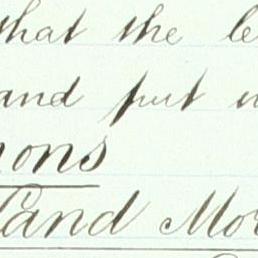 that the le
and put u
ons
Land Mor